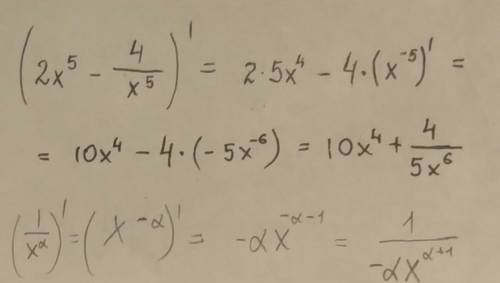 (2x⁵ - 4/x⁵)' = 2·5x⁴ - 4·(x⁻⁵)' =
= 10x⁴ - 4·(-5x⁻⁶) = 10x⁴ + 4/5x⁶
(1/x^α)' = (x^-α)' = -αx^-α-1 = 1/-αx^α+1